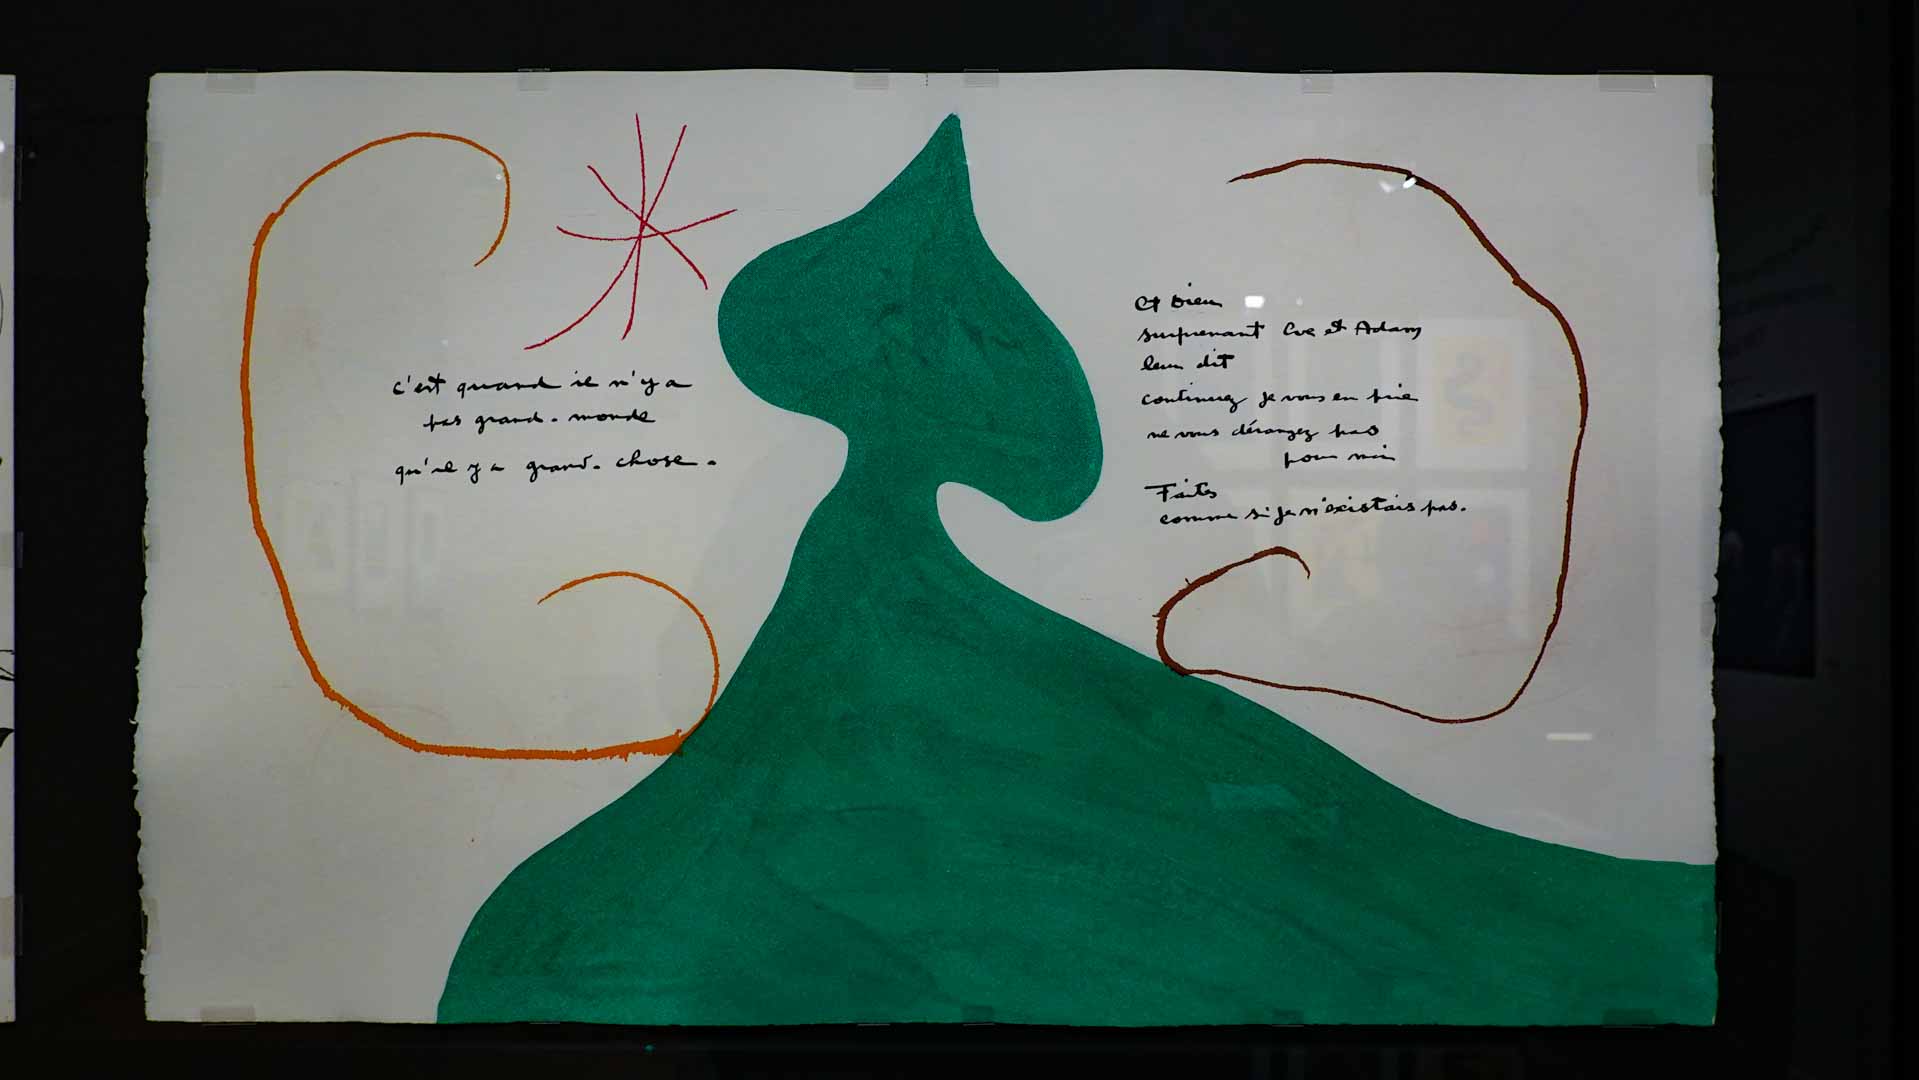 c'est quand il n'y a
pas grand-monde
qu'il y a grand-chose.
Et Dieu
surprenant Eve et Adam
leur dit
continuez je vous en prie
ne vous dérangez pas
pour moi
Faites
comme si je n'existais pas.